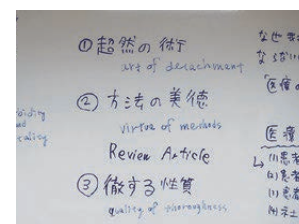 ①超然の術
art of detachment
②方法の美徳
virtue of methods
Review Article
③徹する性質
quality of thoroughness
なぜ
ならない
「医療の
医療